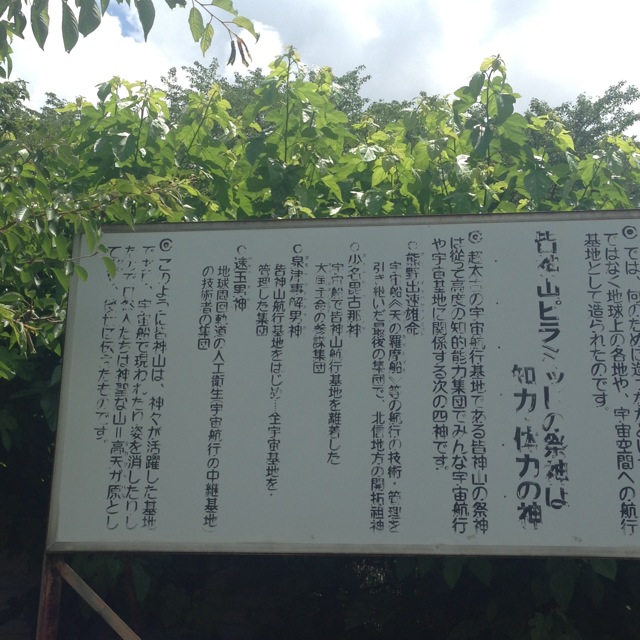 ◎では、何のために造られた
ではなく地球上の各地や、宇宙空間への航行
基地として造られたのです。
皆神山ピラミッドの祭神は
知力、体力の神
◎超太古の宇宙航行基地である皆神山の祭神
は従って高度の知的能力集団でみんな宇宙航行
や宇宙基地に関係する次の四神です。
○熊野出速雄命
宇宙船(天の羅摩船)等の航行の技術・管理を
引き継いだ最後の集団で、北信地方の開拓祖神
○少名毘古那神
宇宙船で皆神山航行基地を離着した
大王子命の参謀集団
○泉津事解男神
皆神山航行基地をはじめ、全宇宙基地を
管理した集団
○速玉男神
地球周回軌道の人工衛生宇宙航行の中継基地
の技術者の集団
◎このように皆神山は、神々が活躍した基地
であり、宇宙船で現われたり姿を消したりし
は神聖な山=高天が原とし
です。